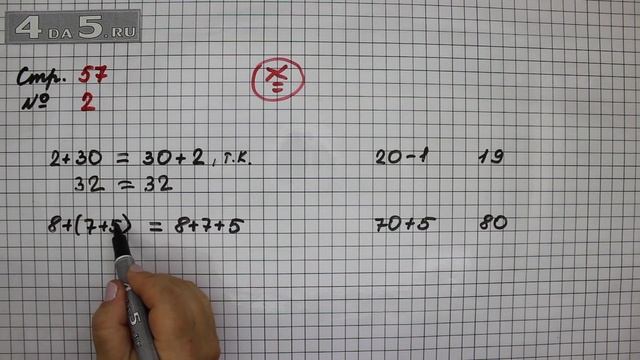 4 DA 5.RU
Стр. 57
№ 2
×
=
2+30 = 30+2, т.к.
32 = 32
20-1 19
8+(7+5) = 8+7+5
70+5 80
4 5